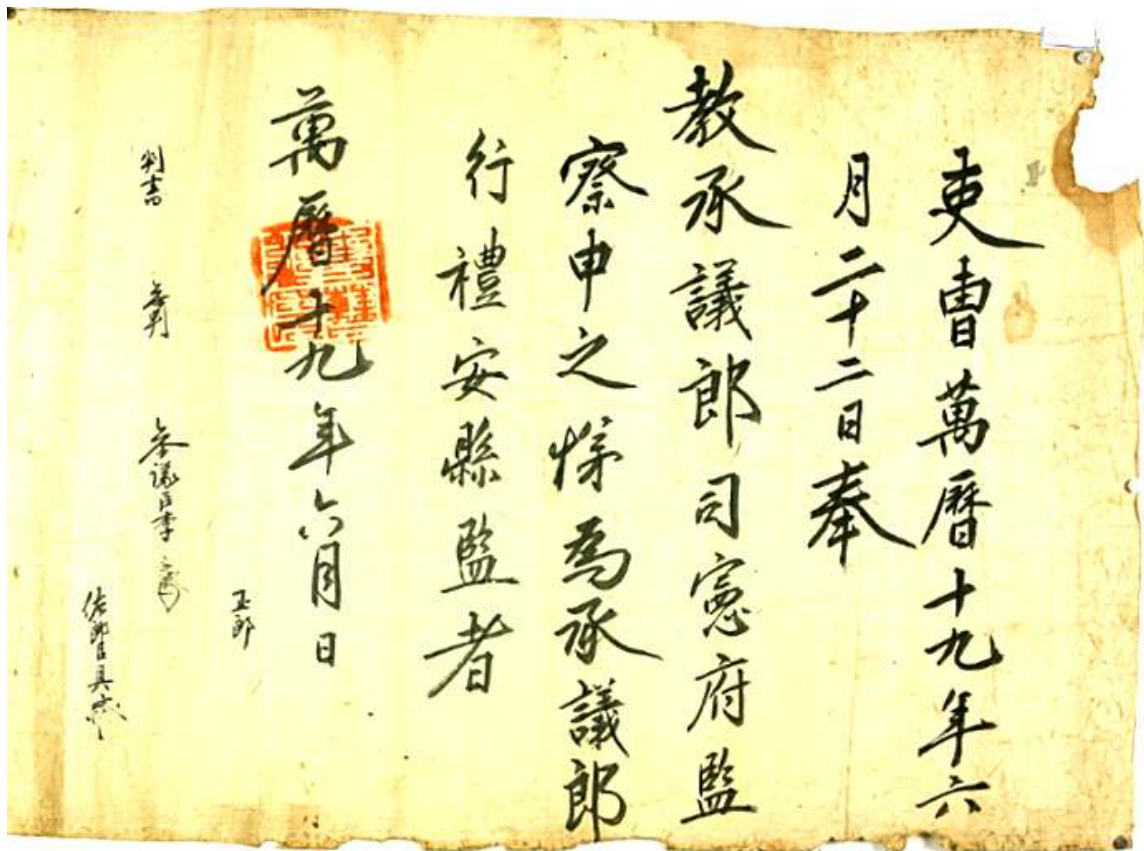 吏曺萬曆十九年六
月二十二日奉
教承議郎司憲府監
察申之悌爲承議郎
行禮安縣監者
萬曆十九年六月 日
正郎
判書 參判 參議臣李
佐郎臣具